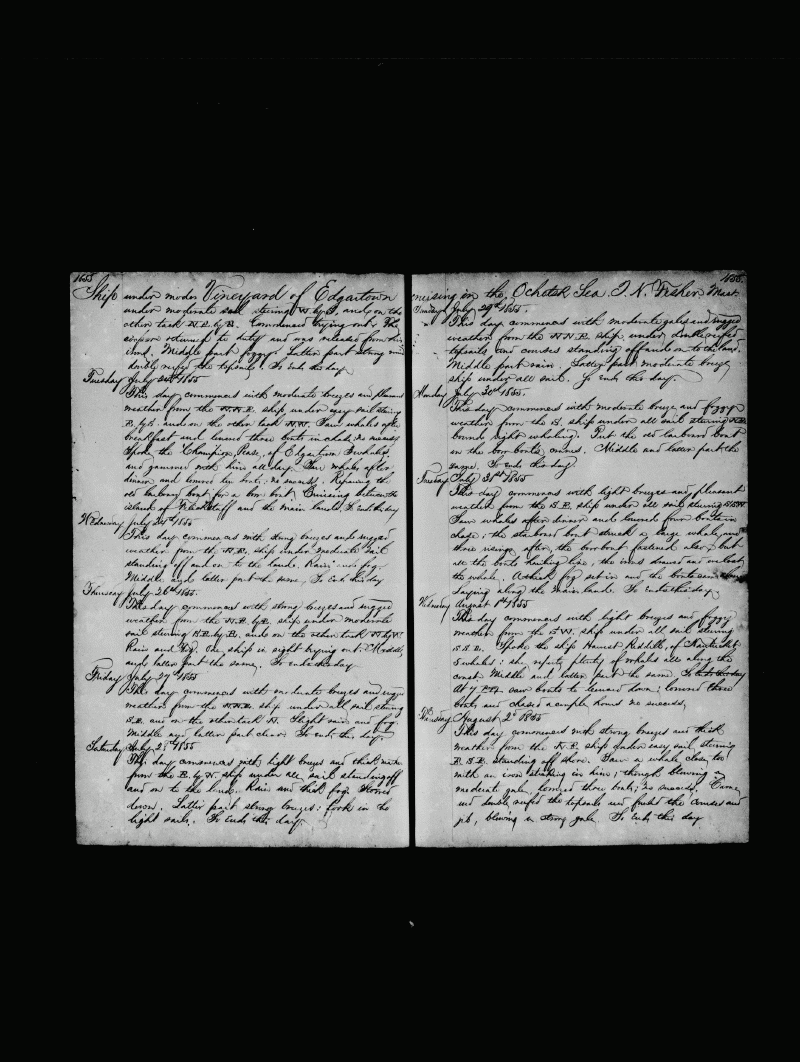 1855
Ship under moder Vineyard of Edgartown
under moderate sail steering W. by S. and on the
other tack N.E. by E. Commenced trying out. The
cooper returned to duty and was released from
irons. Middle part foggy. Latter part strong and
double reefed the topsails. So Ends this day.
Tuesday July 24th 1855
This day commences with moderate breezes and pleasant
weather from the N.N.E. ship under easy sail steering
E. by S. and on the other tack N.W. Saw whales after
breakfast and lowered three boats in chase; no success
Spoke the Champion, Pease, of Edgartown 3 whales
and gammed with him all day. Saw whales after
dinner and lowered boats; no success. Repairing the
old larboard boat for a bow boat. Cruising between the
island of and the main land. So Ends this day
Wednesday July 25th 1855
This day commences with strong breezes and rugged
weather from the N.E., ship under moderate sail
standing off and on to the land. Rain and fog.
Middle and latter part the same. So Ends this day
Thursday July 26th 1855.
This day commences with strong breezes and rugged
weather from the N. by E. ship under moderate
sail steering N.E. by E., and on the other tack W. by N.
Rain and fog. One ship in sight trying out. Middle
and latter part the same. So ends this day.
Friday July 27th 1855
This day commences with moderate breezes and rugged
weather from the N.N.E. ship under all sail steering
S.E. and on the other tack N. Slight rain and fog.
Middle and latter part clear. So Ends this day.
Saturday July 28th 1855
This day commences with light breezes and thick weather
from the E. by N. ship under all sail standing off
and on to the land. Rain and thick fog.
down. Latter part strong breezes: took in the
light sails. So Ends this day.
1855.
cruising in the Ochotsk Sea J. N. Fisher Mast
Sunday July 29th 1855.
This day commences with moderate gales and rugged
weather from the N.N.E. ship under double reefed
topsails and courses standing off and on to the land.
Middle part rain. Latter part moderate breezes
ship under all sail. So Ends this day.
Monday July 30th 1855.
This day commences with moderate breeze and foggy
weather from the E. ship under all sail steering N.E.
bound right whaling. Put the old larboard boat
on the bow boats cranes. Middle and latter part the
same. So Ends this day
Tuesday July 31st 1855
This day commences with light breezes and pleasant
weather from the S.E. ship under all sail steering
Saw whales after dinner and lowered four boats in
chase; the starboard boat struck a large whale, and
those rising after, the bow boat fastened also; but
as the boats hauling line, the irons drawed and we lost
the whale. A thick fog set in and the boats came
laying along the main land. So Ends this day.
Wednesday August 1st 1855
This day commences with light breezes and foggy
weather from the S.W. ship under all sail steering
S.S.E. Spoke the ship Harvest Riddell, of Nantucket
5 whales: she reports plenty of whales all along the
coast. Middle and latter part the same. So Ends this day
At 7 P.M. saw boats to leeward down; lowered three
boats and chased a couple hours no success,
Thursday August 2d 1855
This day commences with strong breezes and thick
weather from the N.E. ship under easy sail steering
E.S.E. standing off shore. Saw a whale close to
with an iron sticking in him; though blowing a
moderate gale, lowered three boats; no success. Came
and double reefed the topsails and furled the courses and
jib, blowing a strong gale. So Ends this day